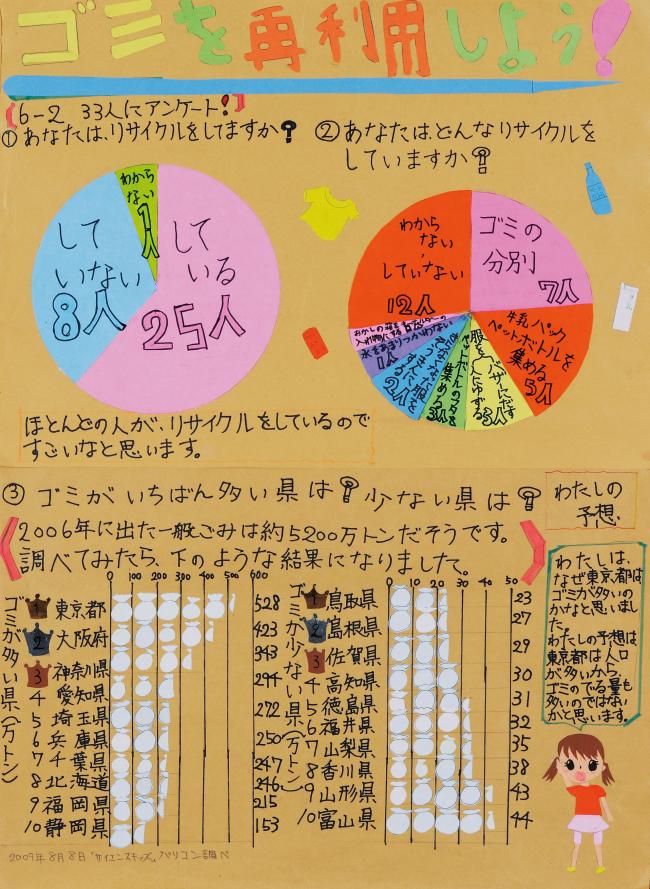 ゴミを再利用しよう!
6-2 33人にアンケート!
①あなたは、リサイクルをしてますか?
わから
ない
1人
して
いない
8人
して
いる
25人
ほとんどの人が、リサイクルをしているので
すごいなと思います。
②あなたは、どんなリサイクルを
していますか?
わから
ない、
していない
12人
ゴミの
分別
7人
牛乳パック
ペットボトルを
集める
5人
バザーにだす
服を人にゆずる
3人
ペットボトルのフタを
集める
3人
2人
水をあまりつかわない
1人
③ゴミがいちばん多い県は?少ない県は?
2006年に出た一般ごみは約5200万トンだそうです。
調べてみたら、下のような結果になりました。
ゴミが多い県(万トン)
0 100 200 300 400 500 600
1 東京都 528
2 大阪府 423
3 神奈川県 343
4 愛知県 294
5 埼玉県 272
6 兵庫県 250
7 千葉県 247
8 北海道 246
9 福岡県 215
10 静岡県 153
ゴミが少ない県(万トン)
0 10 20 30 40 50
1 鳥取県 23
2 島根県 27
3 佐賀県 29
4 高知県 30
5 徳島県 31
6 福井県 32
7 山梨県 35
8 香川県 38
9 山形県 43
10 富山県 44
わたしの
予想
わたしは、
なぜ東京都は
ゴミが多いの
かなと思いまし
た。
わたしの予想は
東京都は人口
が多いから、
ゴミのでる量も
多いのではない
かと思います。
2009年8月8日「サイエンスキッズ」パソコン調べ